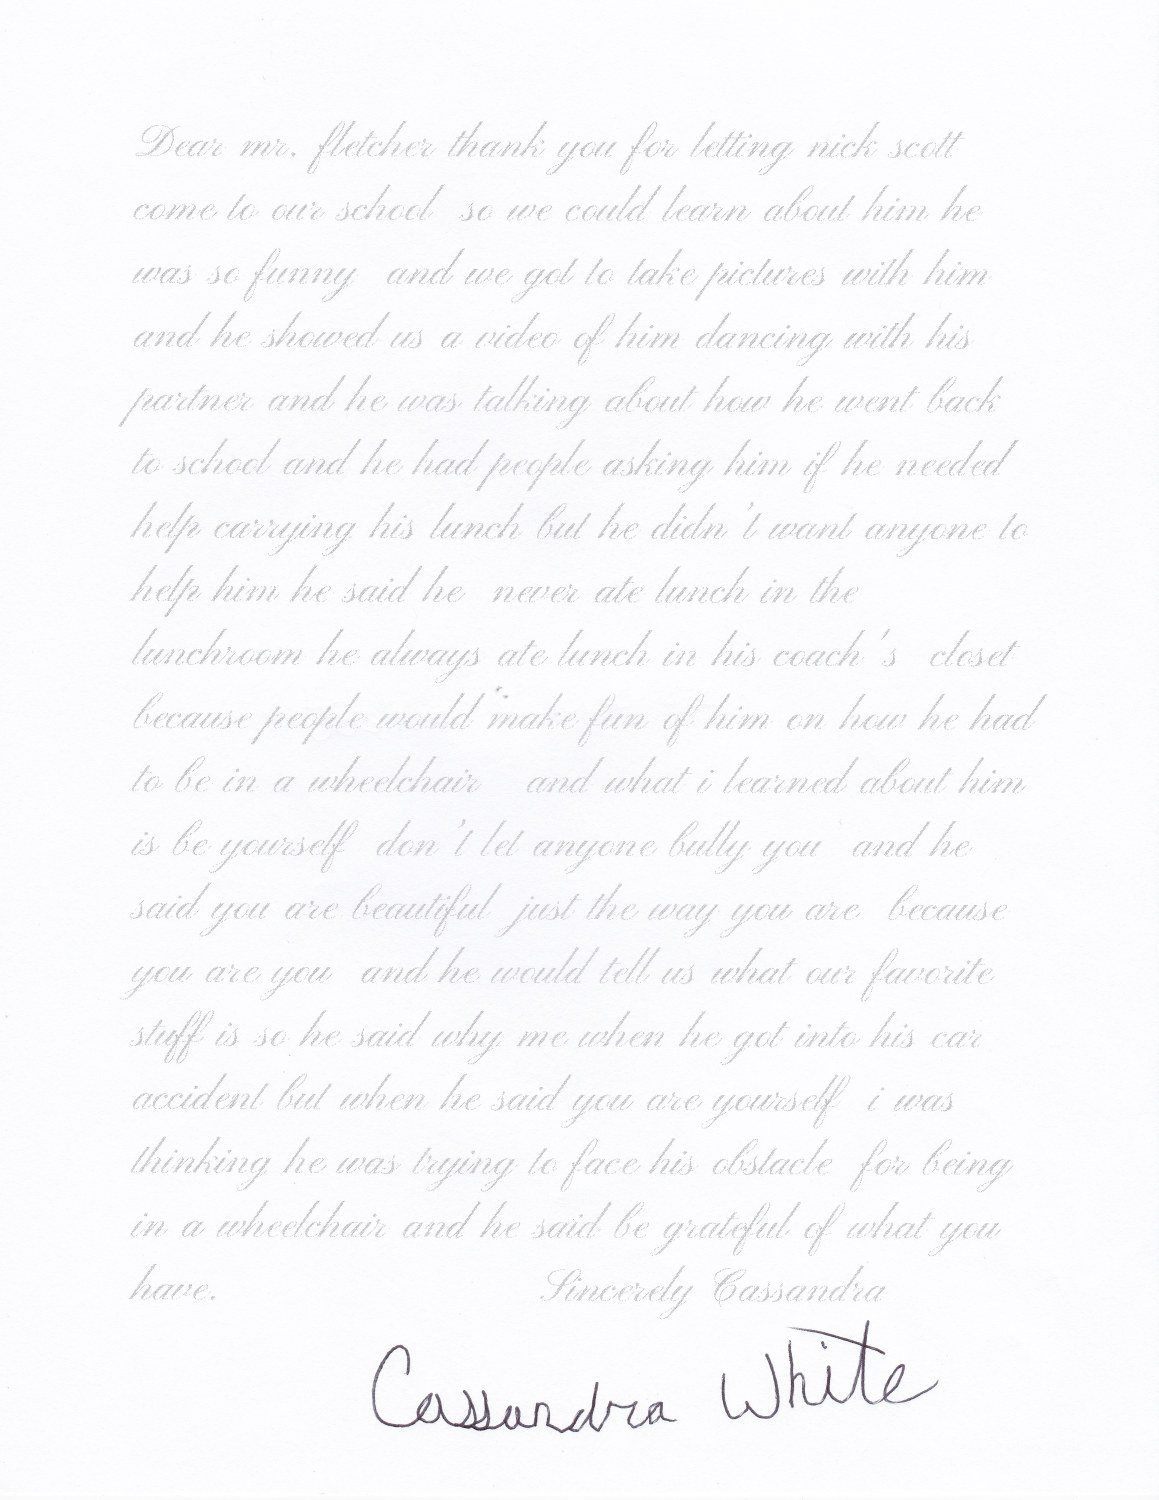 Dear mr. fletcher thank you for letting nick scott
come to our school so we could learn about him he
was so funny and we got to take pictures with him
and he showed us a video of him dancing with his
partner and he was talking about how he went back
to school and he had people asking him if he needed
help carrying his lunch but he didn't want anyone to
help him he said he never ate lunch in the
lunchroom he always ate lunch in his coach's closet
because people would make fun of him on how he had
to be in a wheelchair and what i learned about him
is be yourself don't let anyone bully you and he
said you are beautiful just the way you are because
you are you and he would tell us what our favorite
stuff is so he said why me when he got into his car
accident but when he said you are yourself i was
thinking he was trying to face his obstacle for being
in a wheelchair and he said be grateful of what you
have. Sincerely Cassandra
Cassandra White